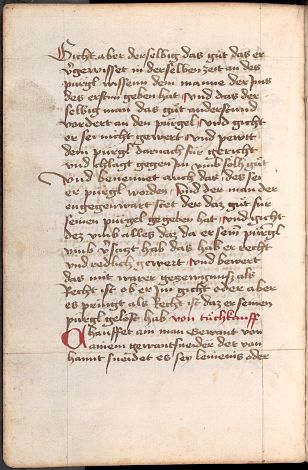 Gicht aber derselbig das gůt das er
v̈gewisset in derselben zeit an des
purgl wissenn dem manne der Ims
des ersten geben hat / vnd das der
selbig man das gůt anderstund
vordert an den purgel / vnd gicht
er sey nicht gewert / vnd pewtt
dem purgl darnach für gericht
vnd chlagt gegen Im vmb solh gůt
vnd benennet auch das des sei
er purgl worden / Sind der man der
engegenwart stet der daz gůt für
seinen purgel gegeben hat / vnd gicht
des vmb alles daz da er sein purgl
vmb v̈sazt hab das hab er recht
vnd redlich gewert / vnd bewert
das mit warer gezewgnüss als
Recht ist ob er Im gicht oder aber
es pringt als recht ist daz er seinen
purgl gelöst hab von tüchkauff
Chauffet ain man gewant von
ainem gewantsneider der von
hannt sneidet es sey leineins oder